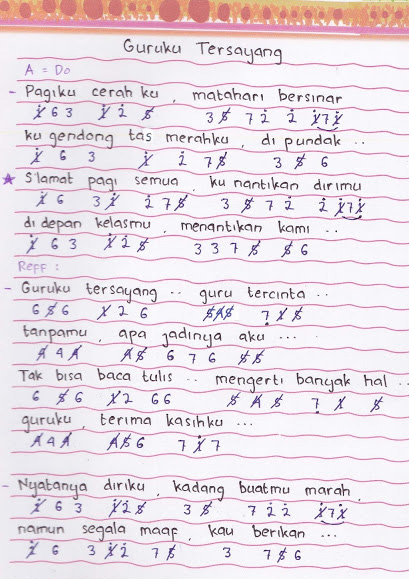 Guruku Tersayang
A = Do
- Pagiku cerah ku , matahari bersinar
1̸̇ 6 3 1̸̇ 2̇ 5̸ 3 5̸ 7 2̇ 2̇ 1̸̇ 7 1̸̇
ku gendong tas merahku , di pundak ..
1̸̇ 6 3 1̸̇ 2̇ 7 5̸ 3 5̸ 6
★ S'lamat pagi semua , ku nantikan dirimu
1̸̇ 6 3 1̸̇ 2̇ 7 5̸ 3 5̸ 7 2̇ 2̇ 1̸̇ 7 1̸̇
di depan kelasmu , menantikan kami ..
1̸̇ 6 3 1̸̇ 2̇ 5̸ 3 3 7 5̸ 5̸ 6
Reff :
- Guruku tersayang .. guru tercinta ..
6 5̸ 6 1̸ 2 6 5̸ 4̸ 5̸ 7̣ 1̸ 5̸
tanpamu , apa jadinya aku ...
4̸ 4 4̸ 4̸ 5̸ 6 7 6 5̸ 5̸
Tak bisa baca tulis .. mengerti banyak hal ..
6 5̸ 6 1̸ 2 6 6 5̸ 4̸ 5̸ 7̣ 1̸ 5̸
guruku , terima kasihku ...
4̸ 4 4̸ 4̸ 5̸ 6 7 1̸̇ 7
- Nyatanya diriku , kadang buatmu marah ,
1̸̇ 6 3 1̸̇ 2̇ 5̸ 3 5̸ 7 2̇ 2̇ 1̸̇ 7 1̸̇
namun segala maaf , kau berikan ...
1̸̇ 6 3 1̸̇ 2̇ 7 5̸ 3 7 5̸ 6